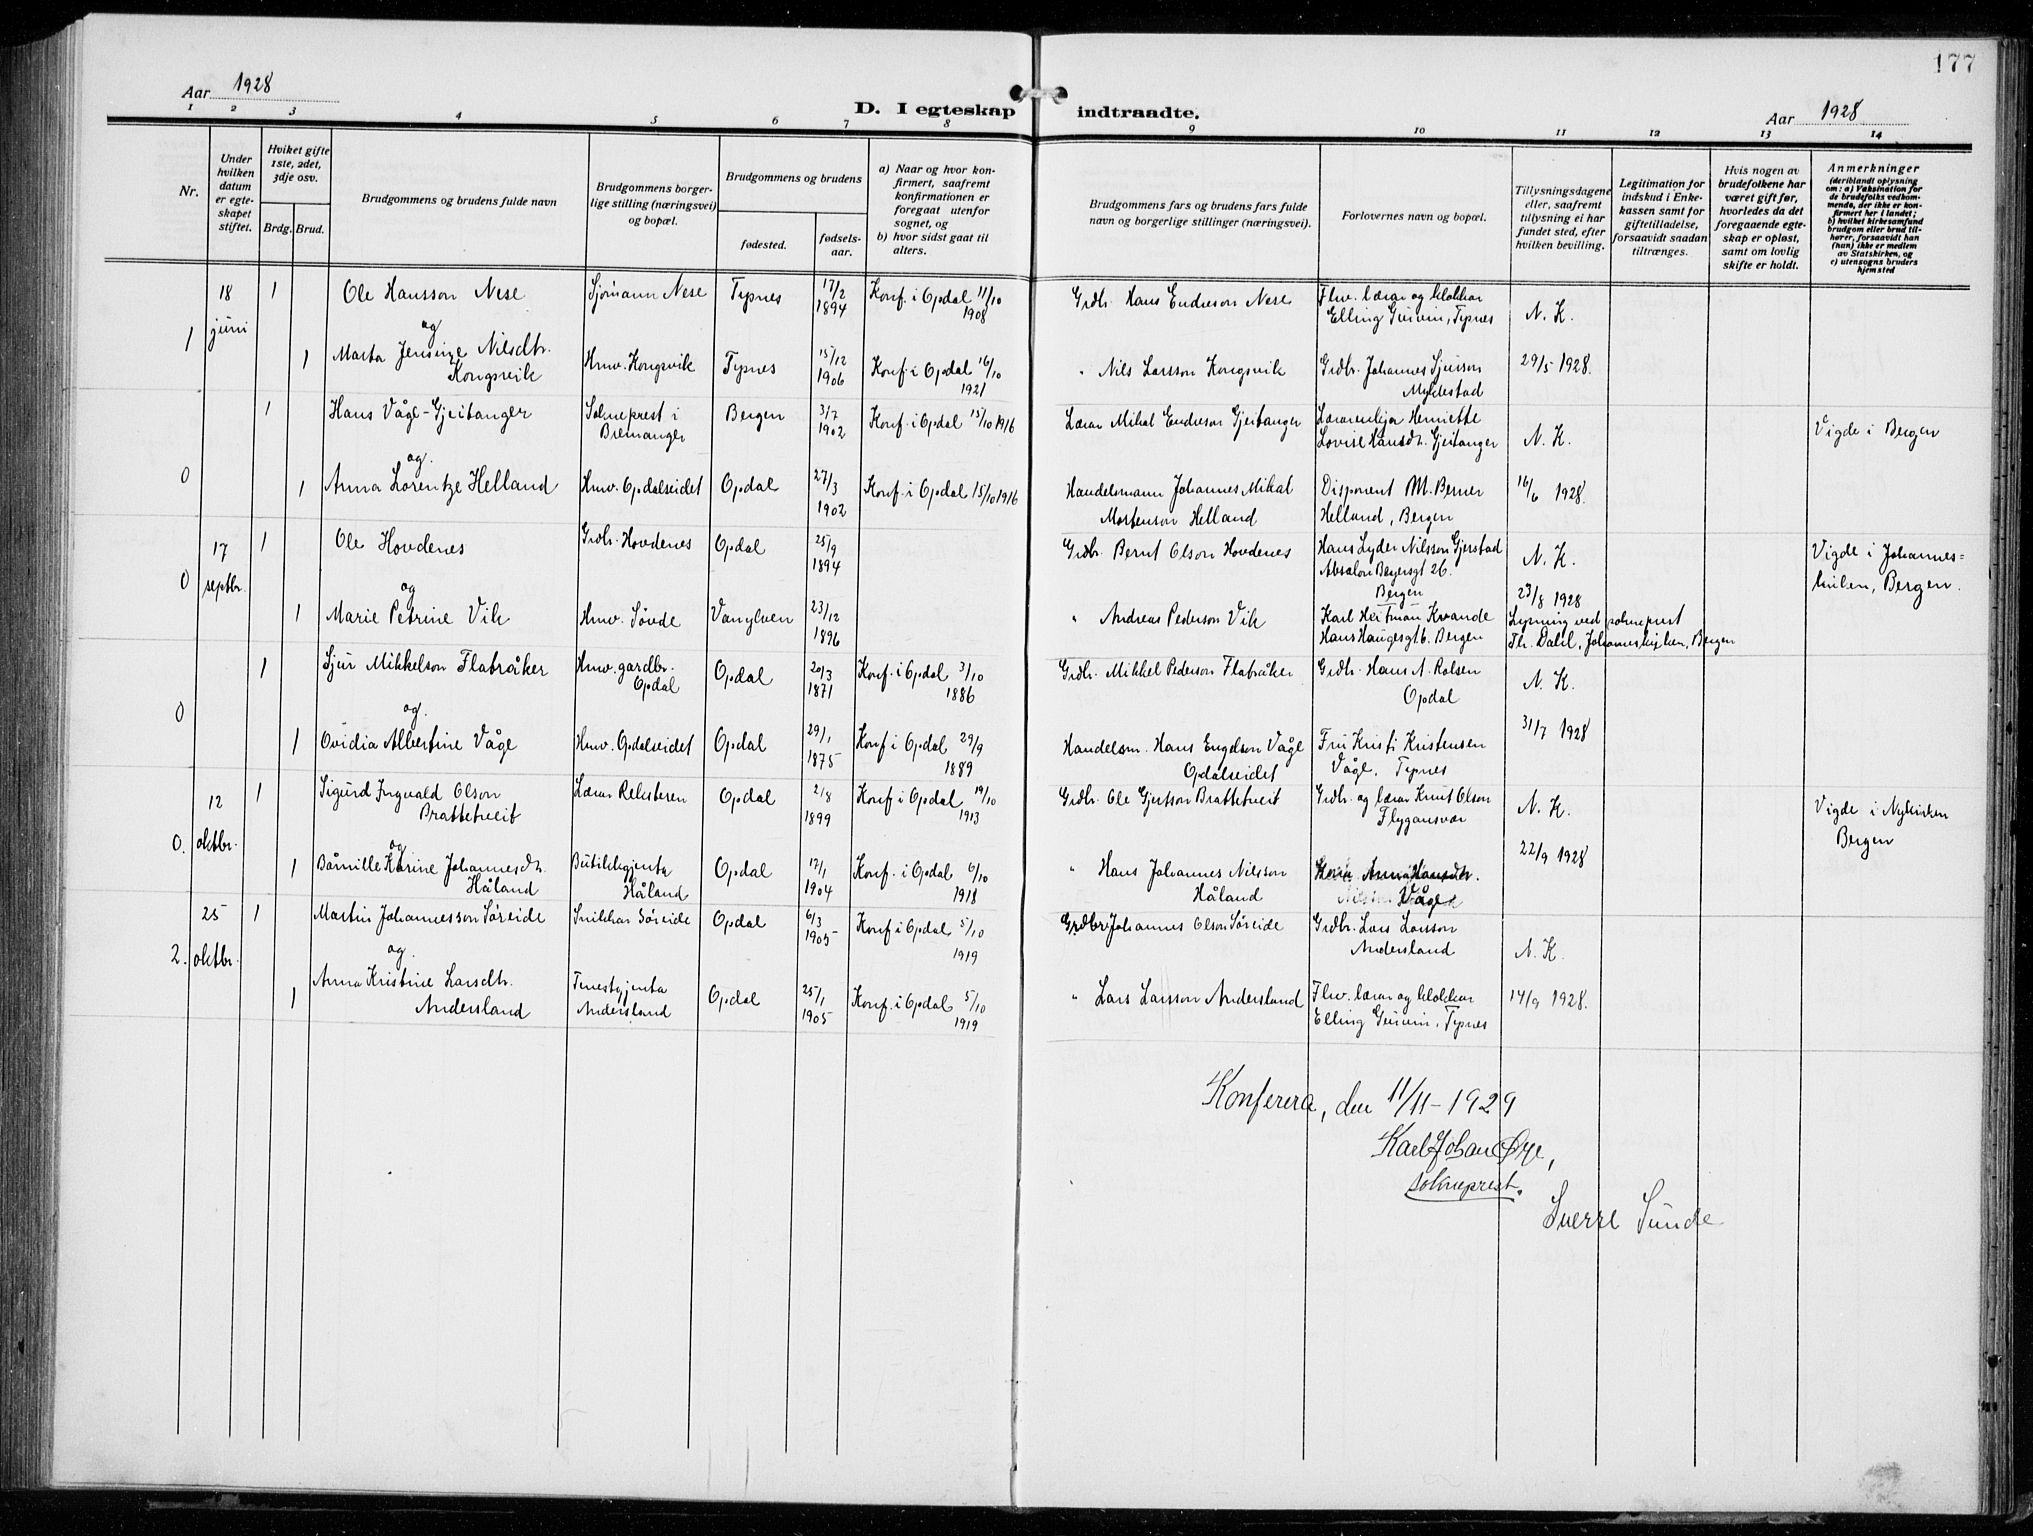 177
Aar 1928
D. I egteskap indtraadte.
Aar 1928
1 2 3 4 5 6 7 8 9 10 11 12 13 14
Nr.
Under hvilken datum er egteskapet stiftet.
Hviket gifte 1ste, 2det, 3dje osv.
Brdg. Brud.
Brudgommens og brudens fulde navn
Brudgommens borgerlige stilling (næringsvei) og bopæl.
Brudgommens og brudens
fødested.
fødselsaar.
a) Naar og hvor konfirmert, saafremt konfirmationen er foregaat utenfor sognet, og
b) hvor sidst gaat til alters.
Brudgommens fars og brudens fars fulde navn og borgerlige stillinger (næringsvei).
Forlovernes navn og bopæl.
Tillysningsdagene eller, saafremt tillysning ei har fundet sted, efter hvilken bevilling.
Legitimation for indskud i Enkekassen samt for giftetilladelse, forsaavidt saadan tiltrænges.
Hvis nogen av brudefolkene har været gift før, hvorledes da det foregaaende egteskap er opløst, samt om lovlig skifte er holdt.
Anmerkninger
(deriblandt oplysning om: a) Vaksination for de brudefolks vedkommende, der ikke er konfirmert her i landet; b) hvilket kirkesamfund brudgom eller brud tilhører, forsaavidt han (hun) ikke er medlem av Statskirken, og c) utensogns bruders hjemsted
1 18 juni 1 Ole Hansson Nese Sjømann Nese Tysnes 17/2 1894 Konf. i Opdal 11/10 1908 Grdbr. Hans Endreson Nese Fhv. lærar og klokkar Elling Gurvin, Tysnes N. K.
og
1 Marta Jensine Nilsdtr. Kongsvik Hmv. Kongsvik Tysnes 15/12 1906 Konf. i Opdal 16/10 1921 " Nils Larsson Kongsvik Grdbr. Johannes Sjursson Myklestad 29/5 1928.
0 1 Hans Våge-Gjeitanger Sokneprest i Bremanger Bergen 3/7 1902 Konf. i Opdal 15/10 1916 Lærar Mikal Endreson Gjeitanger Lærarenkja Henriette Lovise Hansdtr. Gjeitanger N. K. Vigde i Bergen
og.
1 Anna Lorentze Helland Hmv. Opdalseidet Opdal 27/3 1902 Konf. i Opdal 15/10 1916 Handelsmann Johannes Mikal Mortenson Helland Disponent M. Berner Helland, Bergen 16/6 1928.
0 17 septbr. 1 Ole Hovdenes Grdbr. Hovdenes Opdal 25/9 1894 Grdbr. Bernt Olson Hovdenes Hans Lyder Nilsson Gjerstad Absalon Beyersgt 26. Bergen N. K. Vigde i Johanneskirken, Bergen.
og
1 Marie Petrine Vik Hmv. Søvde Vanylven 23/12 1896 " Andreas Pederson Vik Karl Hertman Kvande Hans Haugesgt 6. Bergen 23/8 1928 Lysning ved sokneprest Th. Dahl, Johanneskyrkjen, Bergen
0 1 Sjur Mikkelson Flatråker Hmv. gardbr. Opdal Opdal 20/3 1871 Konf. i Opdal 3/10 1886 Grdbr. Mikkel Pederson Flatråker Grdbr. Hans N. Rolsen Opdal N. K.
og.
1 Ovidia Albertine Våge Hmv. Opdalseidet Opdal 29/1 1875 Konf. i Opdal 29/9 1889 Handelsm. Hans Engelson Våge Opdalseidet Fru Kristi Kristensen Våge, Tysnes 31/7 1928
0. 12 oktbr. 1 Sigurd Ingvald Olson Brattetveit Lærar Reksteren Opdal 2/8 1899 Konf. i Opdal 19/10 1913 Grdbr. Ole Gjertson Brattetveit Grdbr. og lærar Knut Olson Flygansvær N. K. Vigde i Nykirken Bergen
og
1 Bårnille Karine Johannesdtr. Håland Butikkgjenta Håland Opdal 17/1 1904 Konf. i Opdal 6/10 1918 " Hans Johannes Nilsson Håland Anna Hansdtr. Våge 22/9 1928
2. 25 oktbr. 1 Martin Johannesson Søreide Snikkar Søreide Opdal 6/3 1905 Konf. i Opdal 5/10 1919 Grdbr. Johannes Olson Søreide Grdbr. Lars Larsson Andersland N. K.
og.
1 Anna Kristine Larsdtr. Andersland Tenestgjenta Andersland Opdal 25/1 1905 Konf. i Opdal 5/10 1919 " Lars Larsson Andersland Fhv. lærar og klokkar Elling Gurvin, Tysnes 14/9 1928.
Konferera, den 11/11-1929
Karl Johan Øye,
sokneprest.
Sverre Sunde